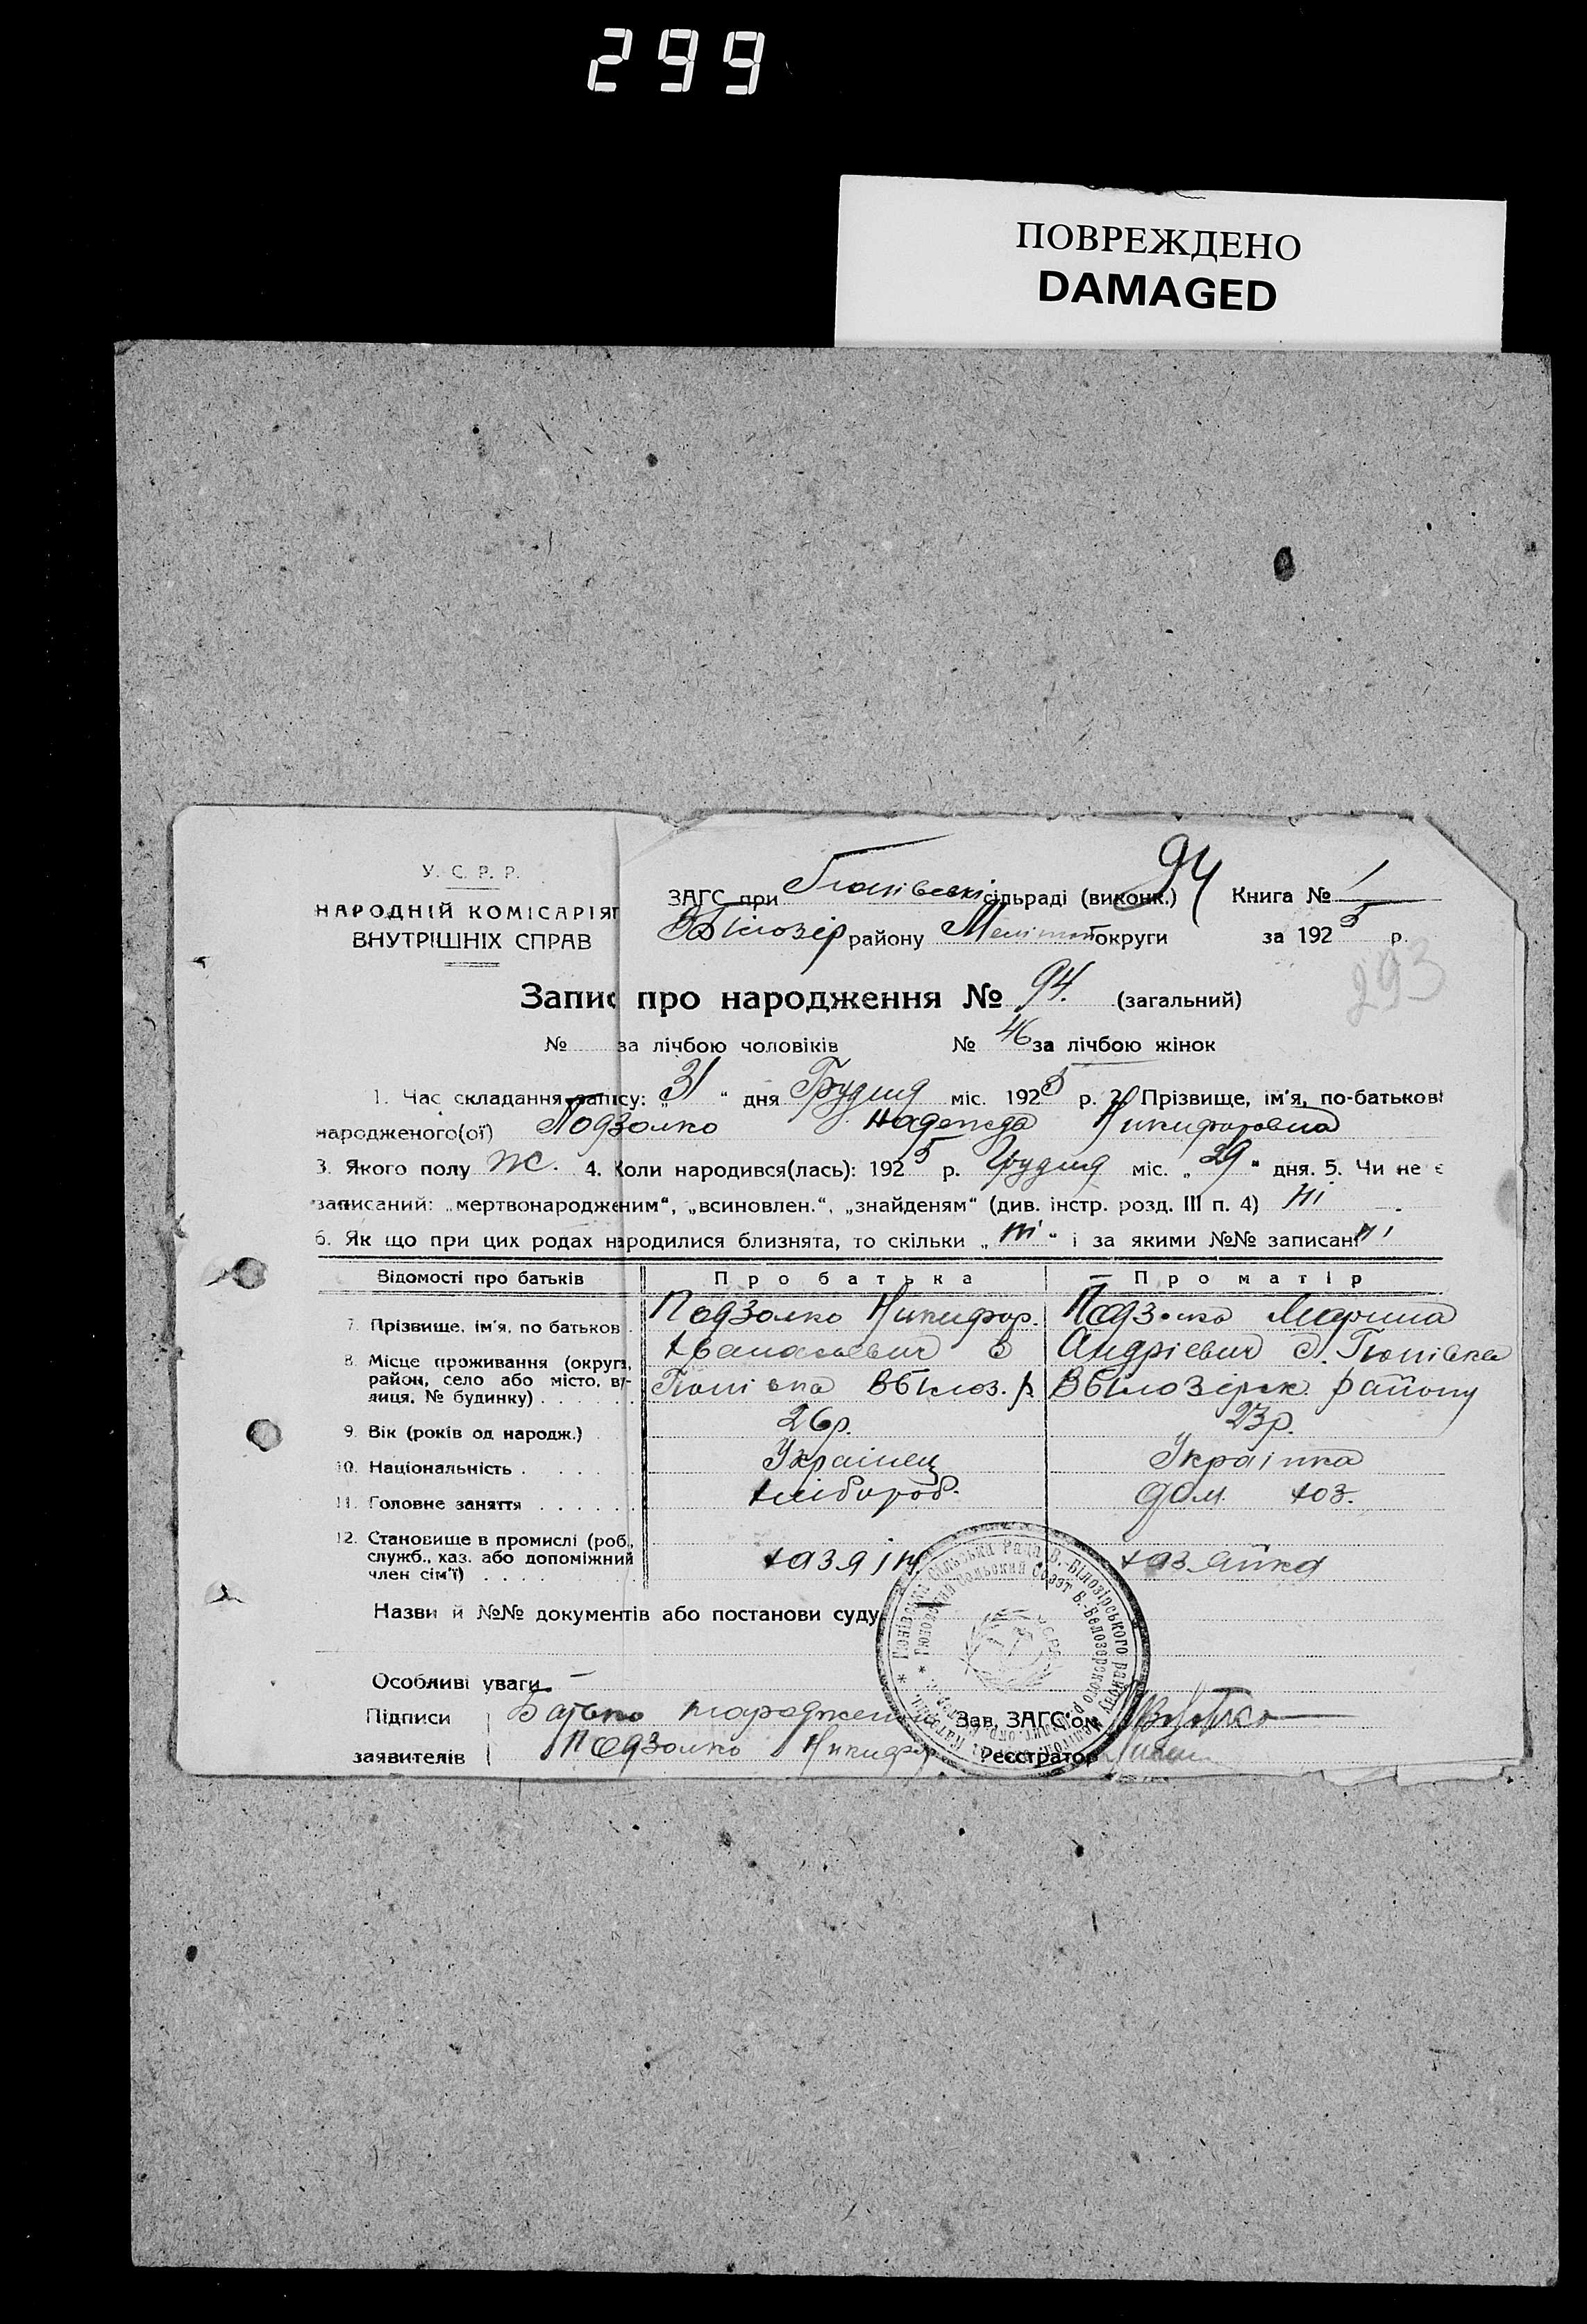 299
ПОВРЕЖДЕНО
DAMAGED
У. С. Р. Р.
НАРОДНІЙ КОМІСАРІЯТ
ВНУТРІШНІХ СПРАВ
ЗАГС при Гюнівські сільраді (виконк.) 94 Книга № 1
ВБілозір району Меліт округи за 1925 р.
293
Запис про народження № 94. (загальний)
№ за лічбою чоловіків № 46 за лічбою жінок
1. Час складання запису: „31“ дня Грудня міс. 1925 р. 2. Прізвище, ім'я, по-батькові
народженого(ої) Подзолко Надежда Никифоровна
3. Якого полу ж. 4. Коли народився(лась): 1925 р. Грудня міс. „29“ дня. 5. Чи не є
записаний: „мертвонародженим“, „всиновлен.“, „знайденям“ (див. інстр. розд. III п. 4) ні
6. Як що при цих родах народилися близнята, то скільки „ні“ і за якими №№ записані ні
Відомості про батьків Про батька Про матір
7. Прізвище, ім'я, по батьков. Подзолко Никифор. Подзолко Марина
8. Місце проживання (округа, Хванасьевич с Андріевич с. Гюнівка
район, село або місто, ву-
лиця, № будинку) . . . . . . Гюнівка ВБілоз. р ВБілозірск. району
9. Вік (років од народж.) . 26р. 23р.
10. Національність . . . . . Украінец Украінка
11. Головне заняття . . . . . . хлібороб. дом. хоз.
12. Становище в промислі (роб.,
служб., хаз. або допоміжний хазяін хазяйка
член сім'ї) . . . .
Назви й №№ документів або постанови суду
Особливі уваги —
Підписи Батько народжен Зав. ЗАГС'ом
заявителів Подзолко Никифор Реєстратор